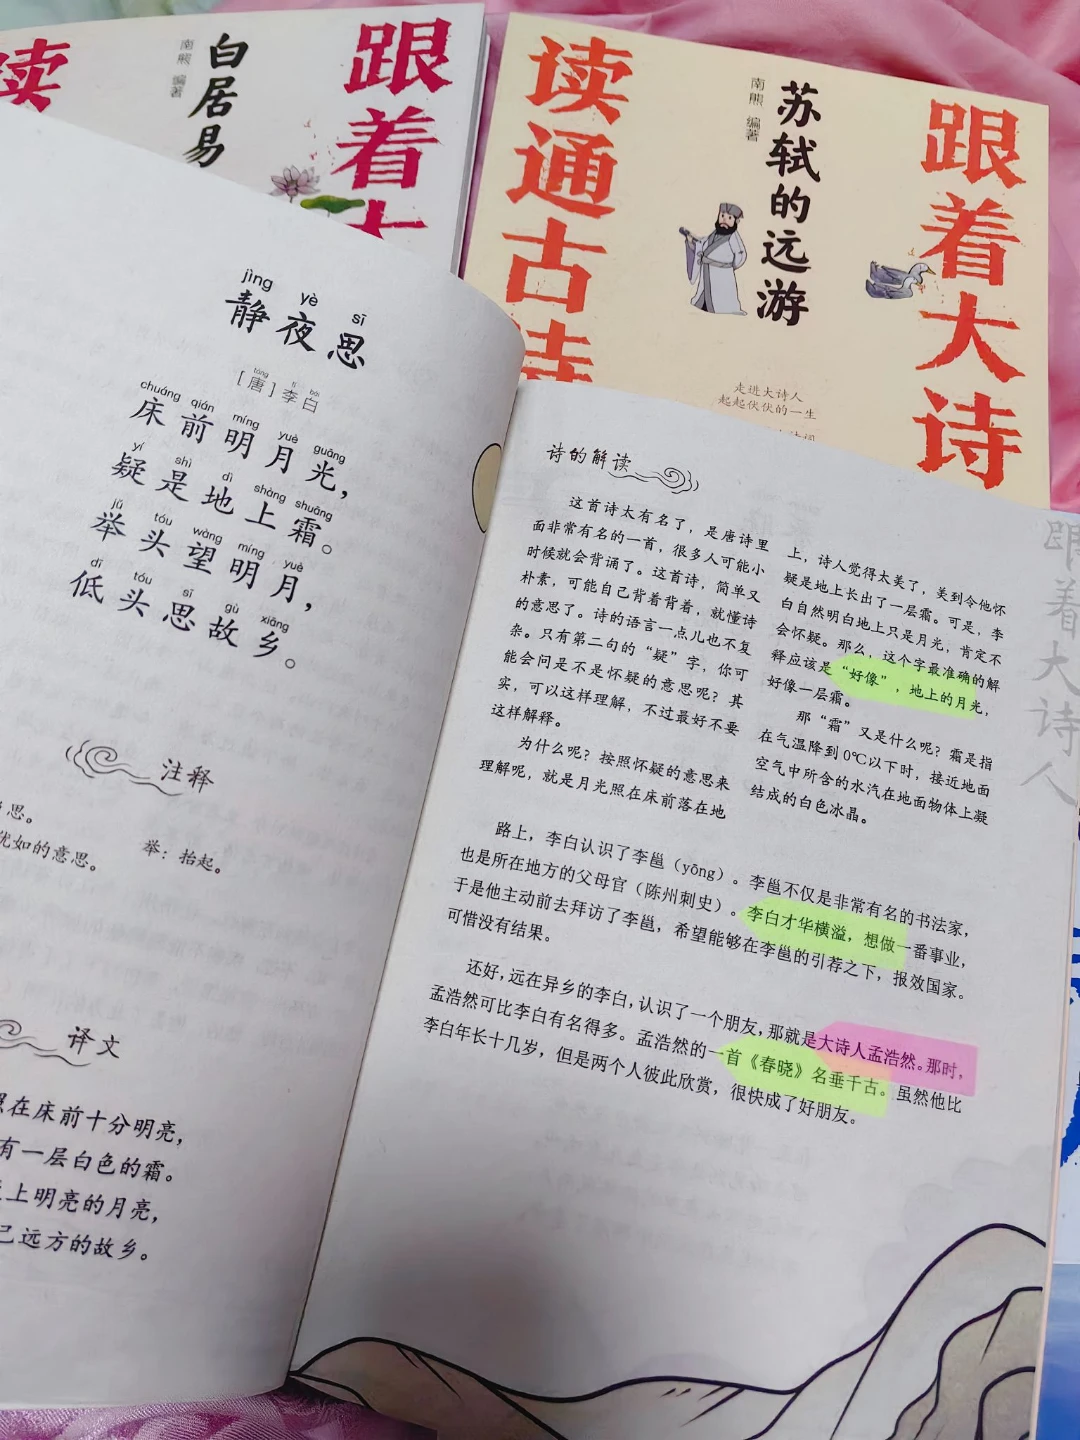 读
白居易
南熊 编著
跟着大
读通古诗
苏轼的远游
南熊 编著
跟着大诗
走进大诗人
起起伏伏的一生
jìng yè sī
静夜思
táng lǐ bái
[唐]李白
chuáng qián míng yuè guāng
床前明月光，
yí shì dì shàng shuāng
疑是地上霜。
jǔ tóu wàng míng yuè
举头望明月，
dī tóu sī gù xiāng
低头思故乡。
注释
思。
举：抬起。
犹如的意思。
译文
照在床前十分明亮，
有一层白色的霜。
上明亮的月亮，
己远方的故乡。
诗的解读
这首诗太有名了，是唐诗里
面非常有名的一首，很多人可能小
时候就会背诵了。这首诗，简单又
朴素，可能自己背着背着，就懂诗
的意思了。诗的语言一点儿也不复
杂。只有第二句的“疑”字，你可
能会问是不是怀疑的意思呢？其
实，可以这样理解，不过最好不要
这样解释。
为什么呢？按照怀疑的意思来
理解呢，就是月光照在床前落在地
上，诗人觉得太美了，美到令他怀
疑是地上长出了一层霜。可是，李
白自然明白地上只是月光，肯定不
会怀疑。那么，这个字最准确的解
释应该是“好像”，地上的月光，
好像一层霜。
那“霜”又是什么呢？霜是指
在气温降到0℃以下时，接近地面
空气中所含的水汽在地面物体上凝
结成的白色冰晶。
路上，李白认识了李邕（yōng）。李邕不仅是非常有名的书法家，
也是所在地方的父母官（陈州刺史）。李白才华横溢，想做一番事业，
于是他主动前去拜访了李邕，希望能够在李邕的引荐之下，报效国家。
可惜没有结果。
还好，远在异乡的李白，认识了一个朋友，那就是大诗人孟浩然。那时，
孟浩然可比李白有名得多。孟浩然的一首《春晓》名垂千古。虽然他比
李白年长十几岁，但是两个人彼此欣赏，很快成了好朋友。
跟着大诗人